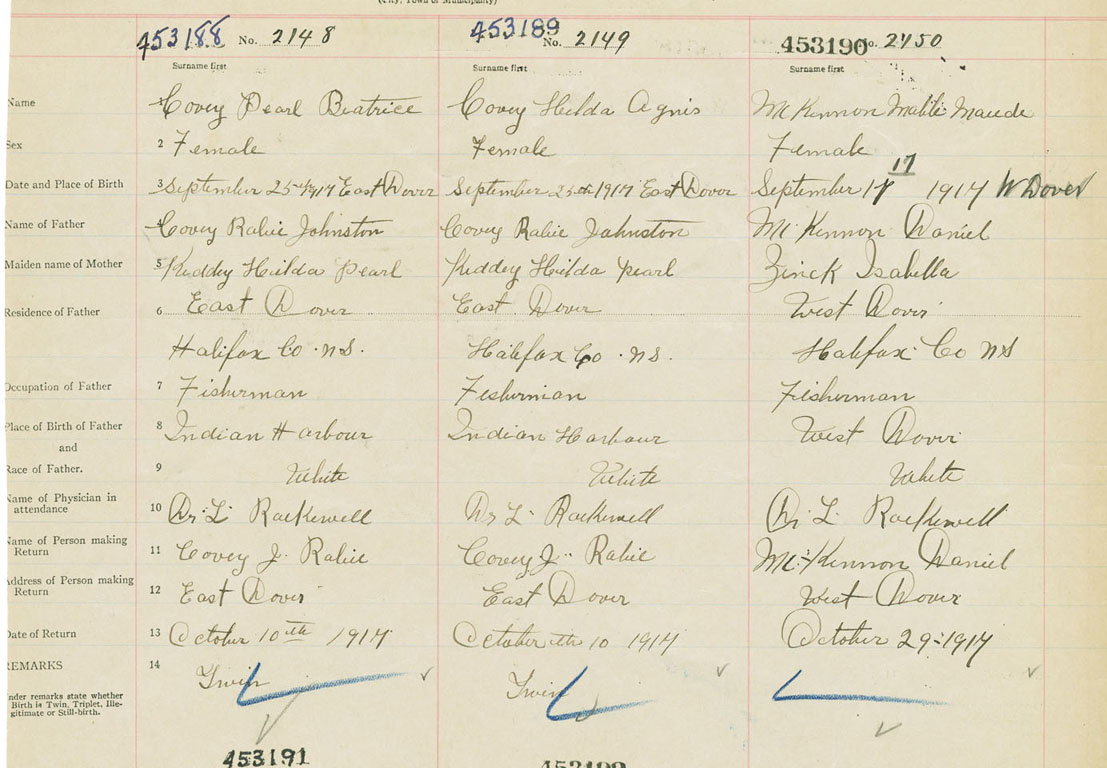 (City, Town or Municipality)
453188 No. 2148 453189 No. 2149 453190 No. 2450
Surname first Surname first Surname first
Name Covey Pearl Beatrice Covey Hilda Agnis McKennon Maude
Sex 2 Female Female Female
17
Date and Place of Birth 3 September 25th 1917 East Dover September 25th 1917 East Dover September 17 1917 W Dover
Name of Father 4 Covey Rabie Johnston Covey Rabie Johnston McKennon Daniel
Maiden name of Mother 5 Hilda Pearl Hilda pearl Zinck Isabella
Residence of Father 6 East Dover East Dover West Dover
Halifax Co. N.S. Halifax Co. N.S. Halifax Co NS
Occupation of Father 7 Fisherman Fisherman Fisherman
Place of Birth of Father 8 Indian Harbour Indian Harbour West Dover
and
Race of Father. 9 White White White
Name of Physician in
attendance 10 Dr. L. Rockwell Dr L. Rockwell Dr. L. Rockwell
Name of Person making
Return 11 Covey J. Rabie Covey J. Rabie McKennon Daniel
Address of Person making
Return 12 East Dover East Dover West Dover
Date of Return 13 October 10th 1917 October th 10 1917 October 29-1917
REMARKS 14 Twin Twin
Under remarks state whether
Birth is Twin, Triplet, Ille-
gitimate or Still-birth.
453191